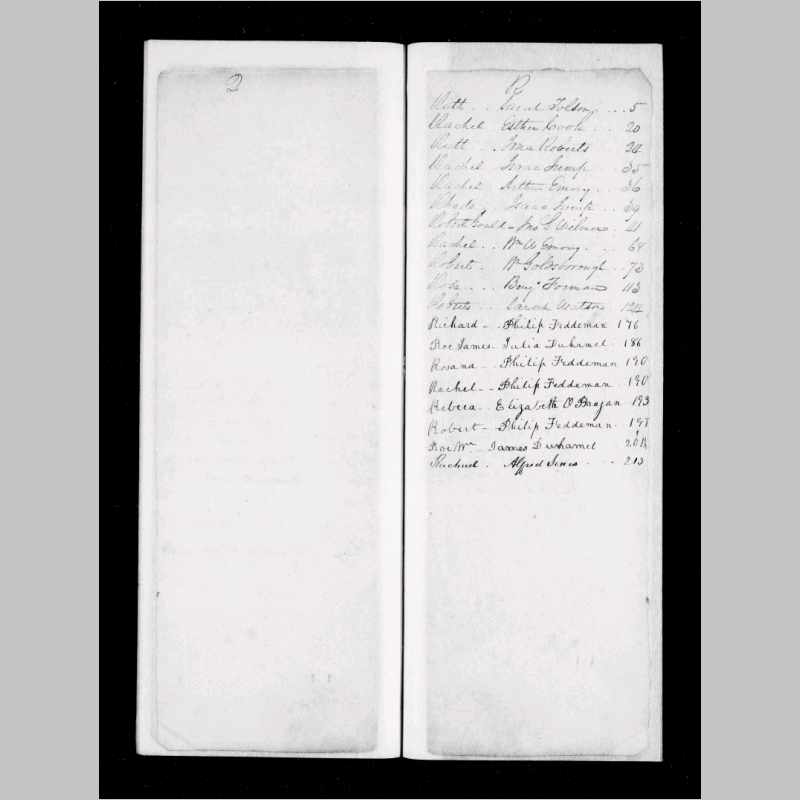 Q
R
Ruth . . Tolson . . . 5
Rachel Esther Crook . . 20
Ruth . . Roberts 24
Rachel Isaac Jump . . 35
Rachel Arthur Emory . . 36
Rhoda . Isaac Jump . . 39
Robert Gould - Jno L Wilmer . 41
Rachel . . Wm A Emory . . 64
Robert . Wm Goldsborough . 73
Rose . . . Benjn Forman 113
Roberts . . Sarah Watson 124
Richard - . Philip Feddeman 176
Roe James - Julia Duhamel . 186
Rosana - . Philip Feddeman 190
Rachel - - Philip Feddeman . 190
Rebeca - . Elizabeth O Bryan 193
Robert - . Philip Feddeman . 197
Roe Wm - James Duhamel
Rachael . Alfred Jones . . . 213